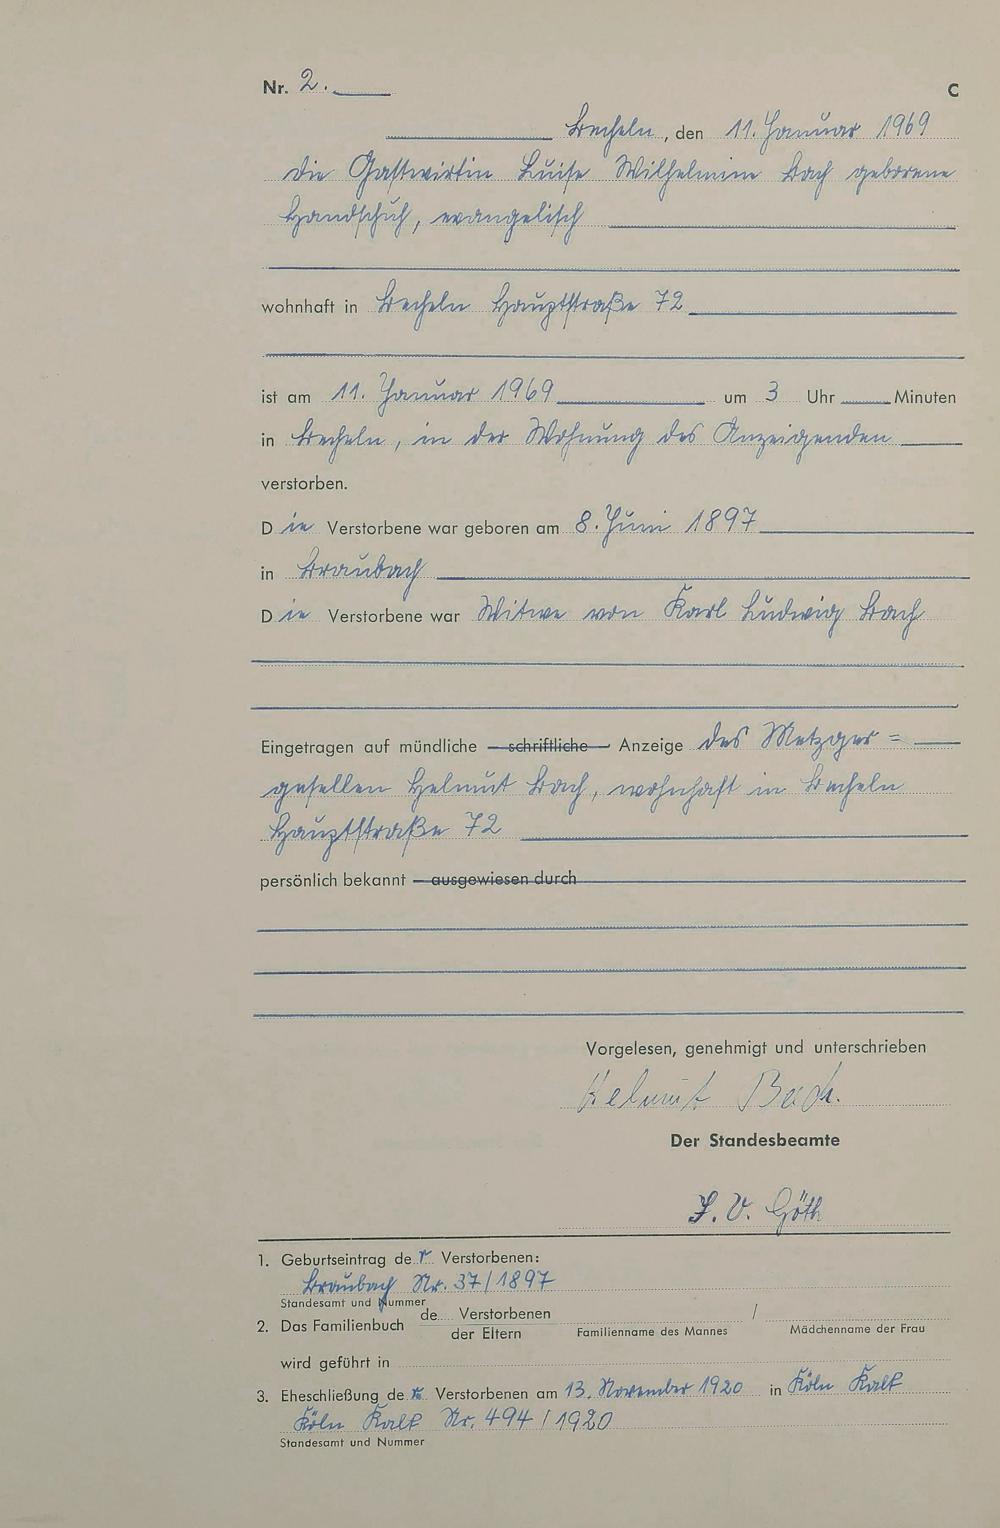 Nr. 2. C
Becheln, den 11. Januar 1969
Die Gastwirtin Luise Wilhelmine Bach geborene
Handschuh, evangelisch
wohnhaft in Becheln Hauptstraße 72
ist am 11. Januar 1969 um 3 Uhr Minuten
in Becheln, in der Wohnung des Anzeigenden
verstorben.
Die Verstorbene war geboren am 8. Juni 1897
in Braubach
Die Verstorbene war Witwe von Karl Ludwig Bach
Eingetragen auf mündliche – schriftliche – Anzeige des Metzger=
gesellen Helmut Bach, wohnhaft in Becheln
Hauptstraße 72
persönlich bekannt – ausgewiesen durch
Vorgelesen, genehmigt und unterschrieben
Helmut Bach.
Der Standesbeamte
I. V. Göth
1. Geburtseintrag der Verstorbenen:
Braubach Nr. 37/1897
Standesamt und Nummer
2. Das Familienbuch de Verstorbenen /
der Eltern Familienname des Mannes Mädchenname der Frau
wird geführt in
3. Eheschließung der Verstorbenen am 13. November 1920 in Köln Kalk
Köln Kalk Nr. 494/1920
Standesamt und Nummer